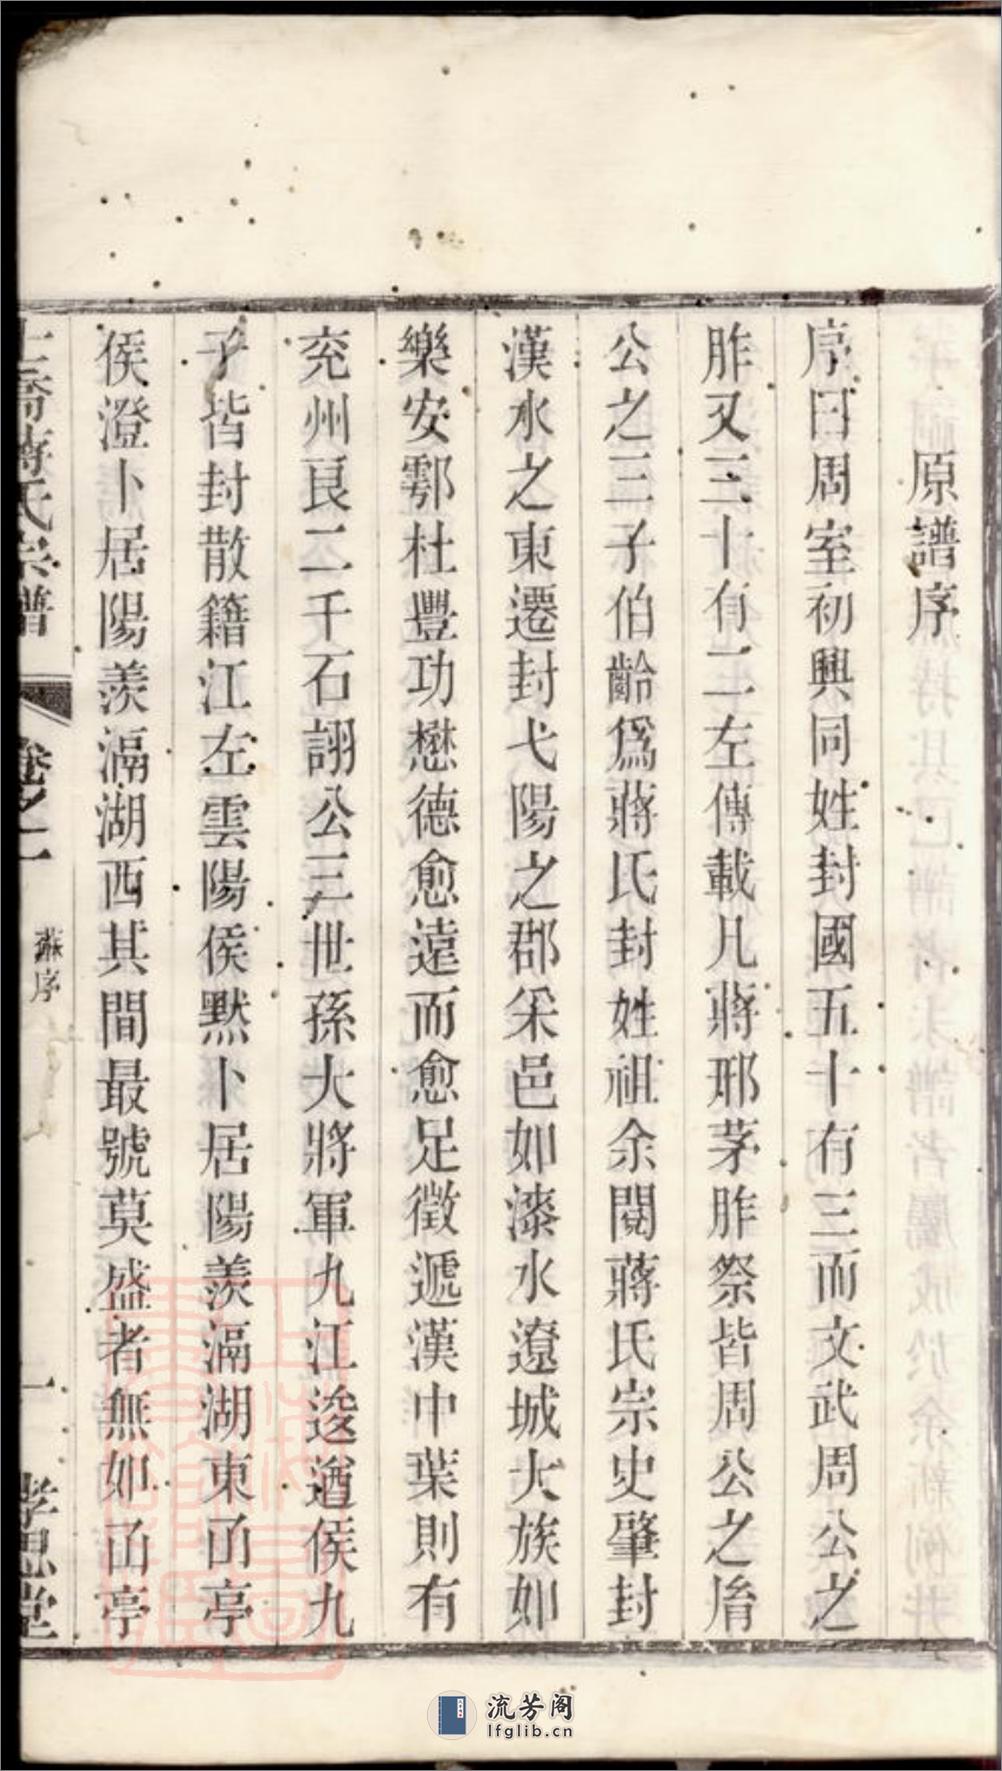 原譜序
序曰周室初興同姓封國五十有三而文武周公之
胙又三十有二左傳載凡蔣邢茅胙祭皆周公之胤
公之三子伯齡爲蔣氏封姓祖余閱蔣氏宗史肇封
漢水之東遷封弋陽之郡采邑如漆水遼城大族如
樂安鄠杜豐功懋德愈遠而愈足徵遞漢中葉則有
兖州良二千石詡公三世孫大將軍九江逡遒侯九
子皆封散籍江左雲陽侯默卜居陽羨滆湖東㔾亭
侯澄卜居陽羨滆湖西其間最號莫盛者無如㔾亭
蔣氏宗譜
卷之一
蘇序
一
孝思堂
流芳阁
lfglib.cn